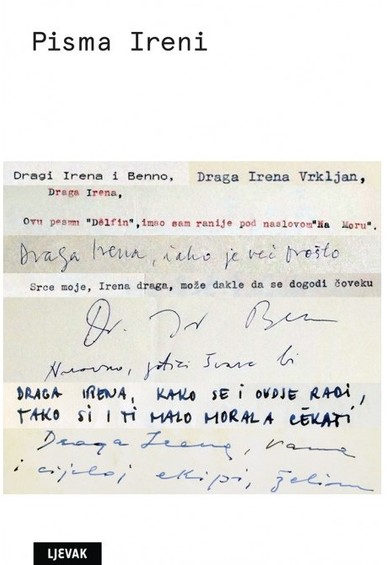 Pisma Ireni
Dragi Irena i Benno, Draga Irena Vrkljan,
Draga Irena,
Ovu pesmu "Dëlfin", imao sam ranije pod naslovom "Na Moru".
Draga Irena, iako je već prošlo
Srce moje, Irena draga, može dakle da se dogodi čoveku
DRAGA IRENA, KAKO SE I OVDJE RADI,
TAKO SI I TI MALO MORALA ČEKATI
Draga Irena, vama
i cijeloj ekipi, želim
LJEVAK